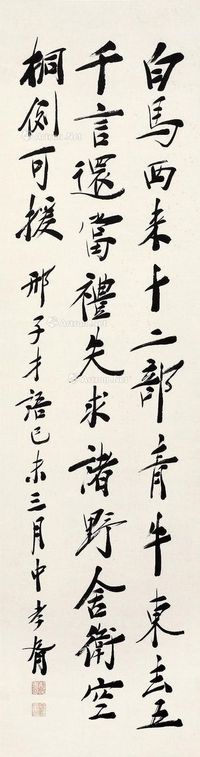 白馬西來十二部青牛東去五
千言還當禮失求諸野舍衛空
桐倒可援 邢子才語己未三月中孝胥